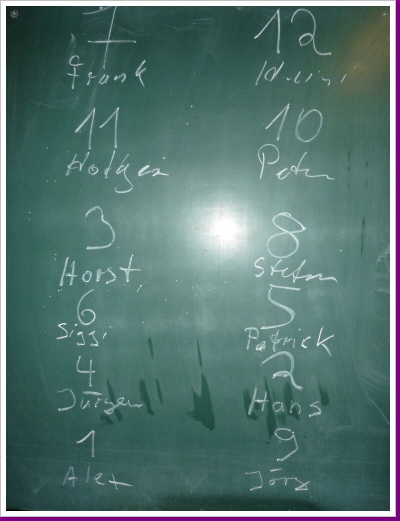 7 12
Frank
11 10
Holger Peter
3 8
Horst Stefan
6 5
Siggi Patrick
4 2
Jürgen Hans
1 9
Alex Jörg